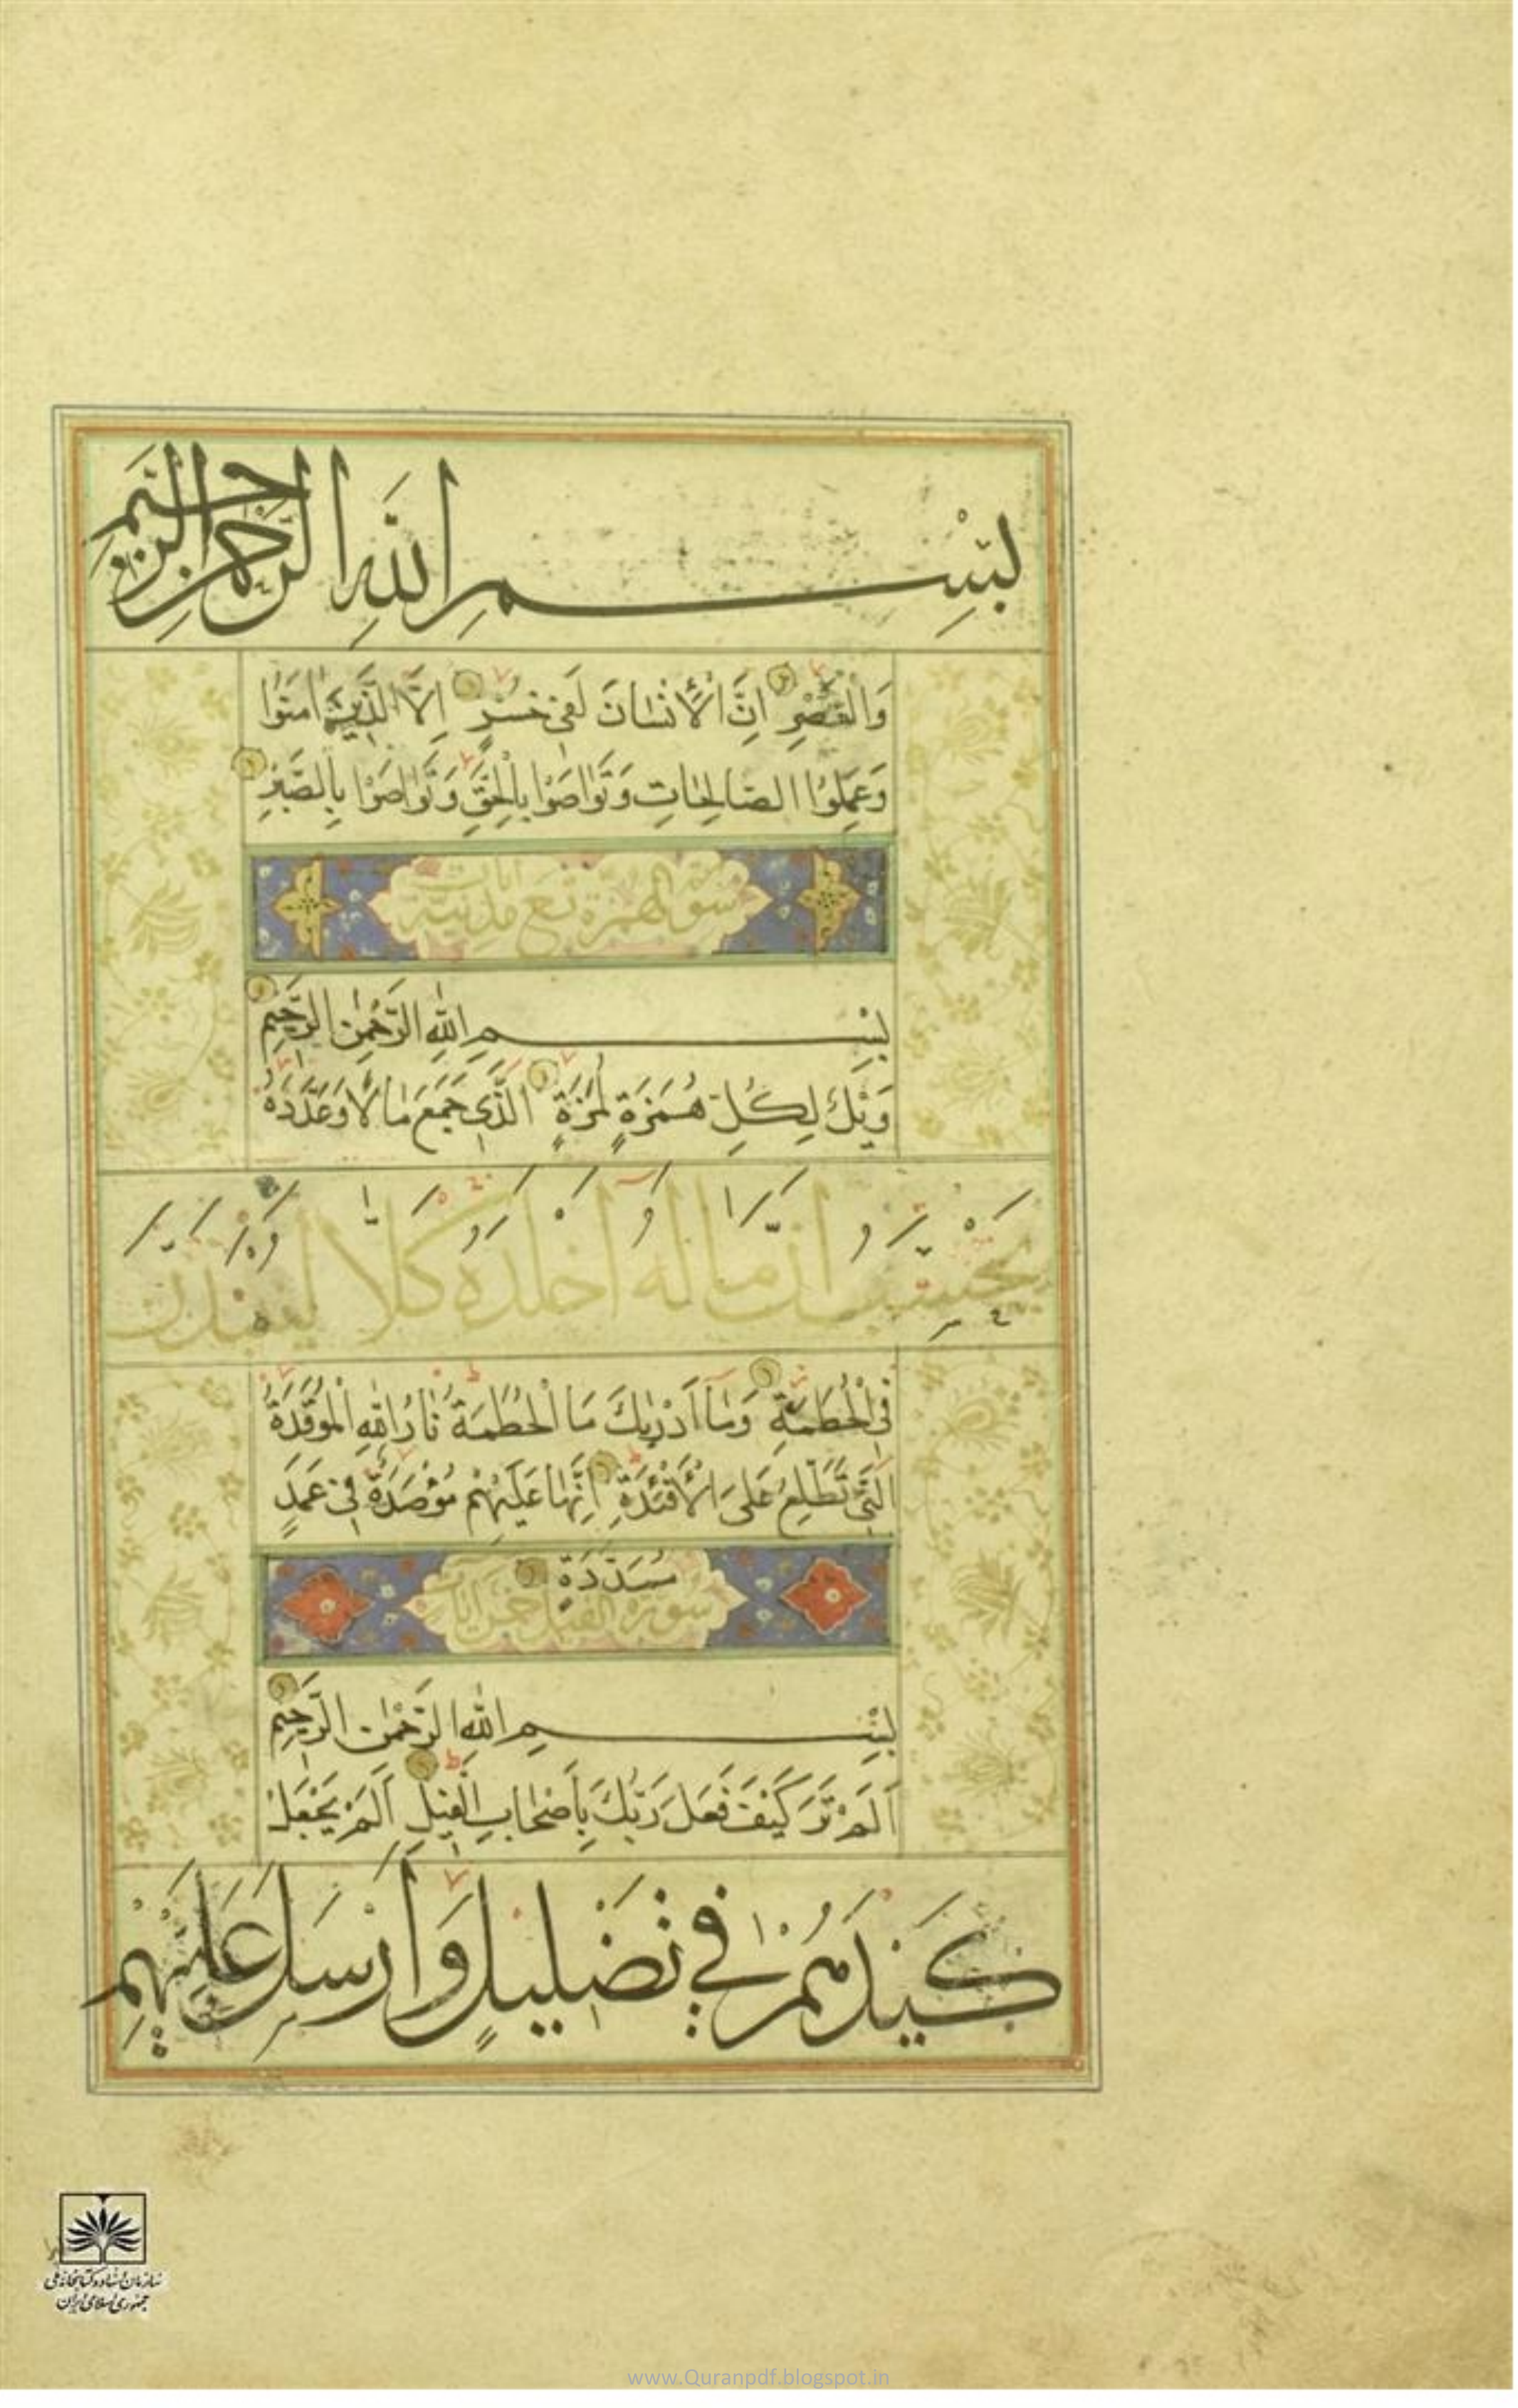 بِسْمِ اللهِ الرَّحْمٰنِ الرَّحِيمِ
وَالْعَصْرِ اِنَّ الْأِنْسَانَ لَفِي خُسْرٍ اِلَّا الَّذِينَ اٰمَنُوا
وَعَمِلُوا الصَّالِحَاتِ وَتَوَاصَوْا بِالْحَقِّ وَتَوَاصَوْا بِالصَّبْرِ
سورة الهمزة تسع آيات مدنية
بِسْمِ اللهِ الرَّحْمٰنِ الرَّحِيمِ
وَيْلٌ لِكُلِّ هُمَزَةٍ لُمَزَةٍ الَّذِي جَمَعَ مَالًا وَعَدَّدَهُ
يَحْسَبُ اَنَّ مَالَهُ اَخْلَدَهُ كَلَّا لَيُنْبَذَنَّ
فِي الْحُطَمَةِ وَمَا اَدْرٰيكَ مَا الْحُطَمَةُ نَارُ اللهِ الْمُوقَدَةُ
الَّتِي تَطَّلِعُ عَلَى الْأَفْئِدَةِ اِنَّهَا عَلَيْهِمْ مُؤْصَدَةٌ فِي عَمَدٍ
مُمَدَّدَةٍ
سورة الفيل خمس آيات
بِسْمِ اللهِ الرَّحْمٰنِ الرَّحِيمِ
اَلَمْ تَرَ كَيْفَ فَعَلَ رَبُّكَ بِأَصْحَابِ الْفِيلِ اَلَمْ يَجْعَلْ
كَيْدَهُمْ فِي تَضْلِيلٍ وَاَرْسَلَ عَلَيْهِمْ
سازمان اسناد و کتابخانه ملی
جمهوری اسلامی ایران
www.Quranpdf.blogspot.in